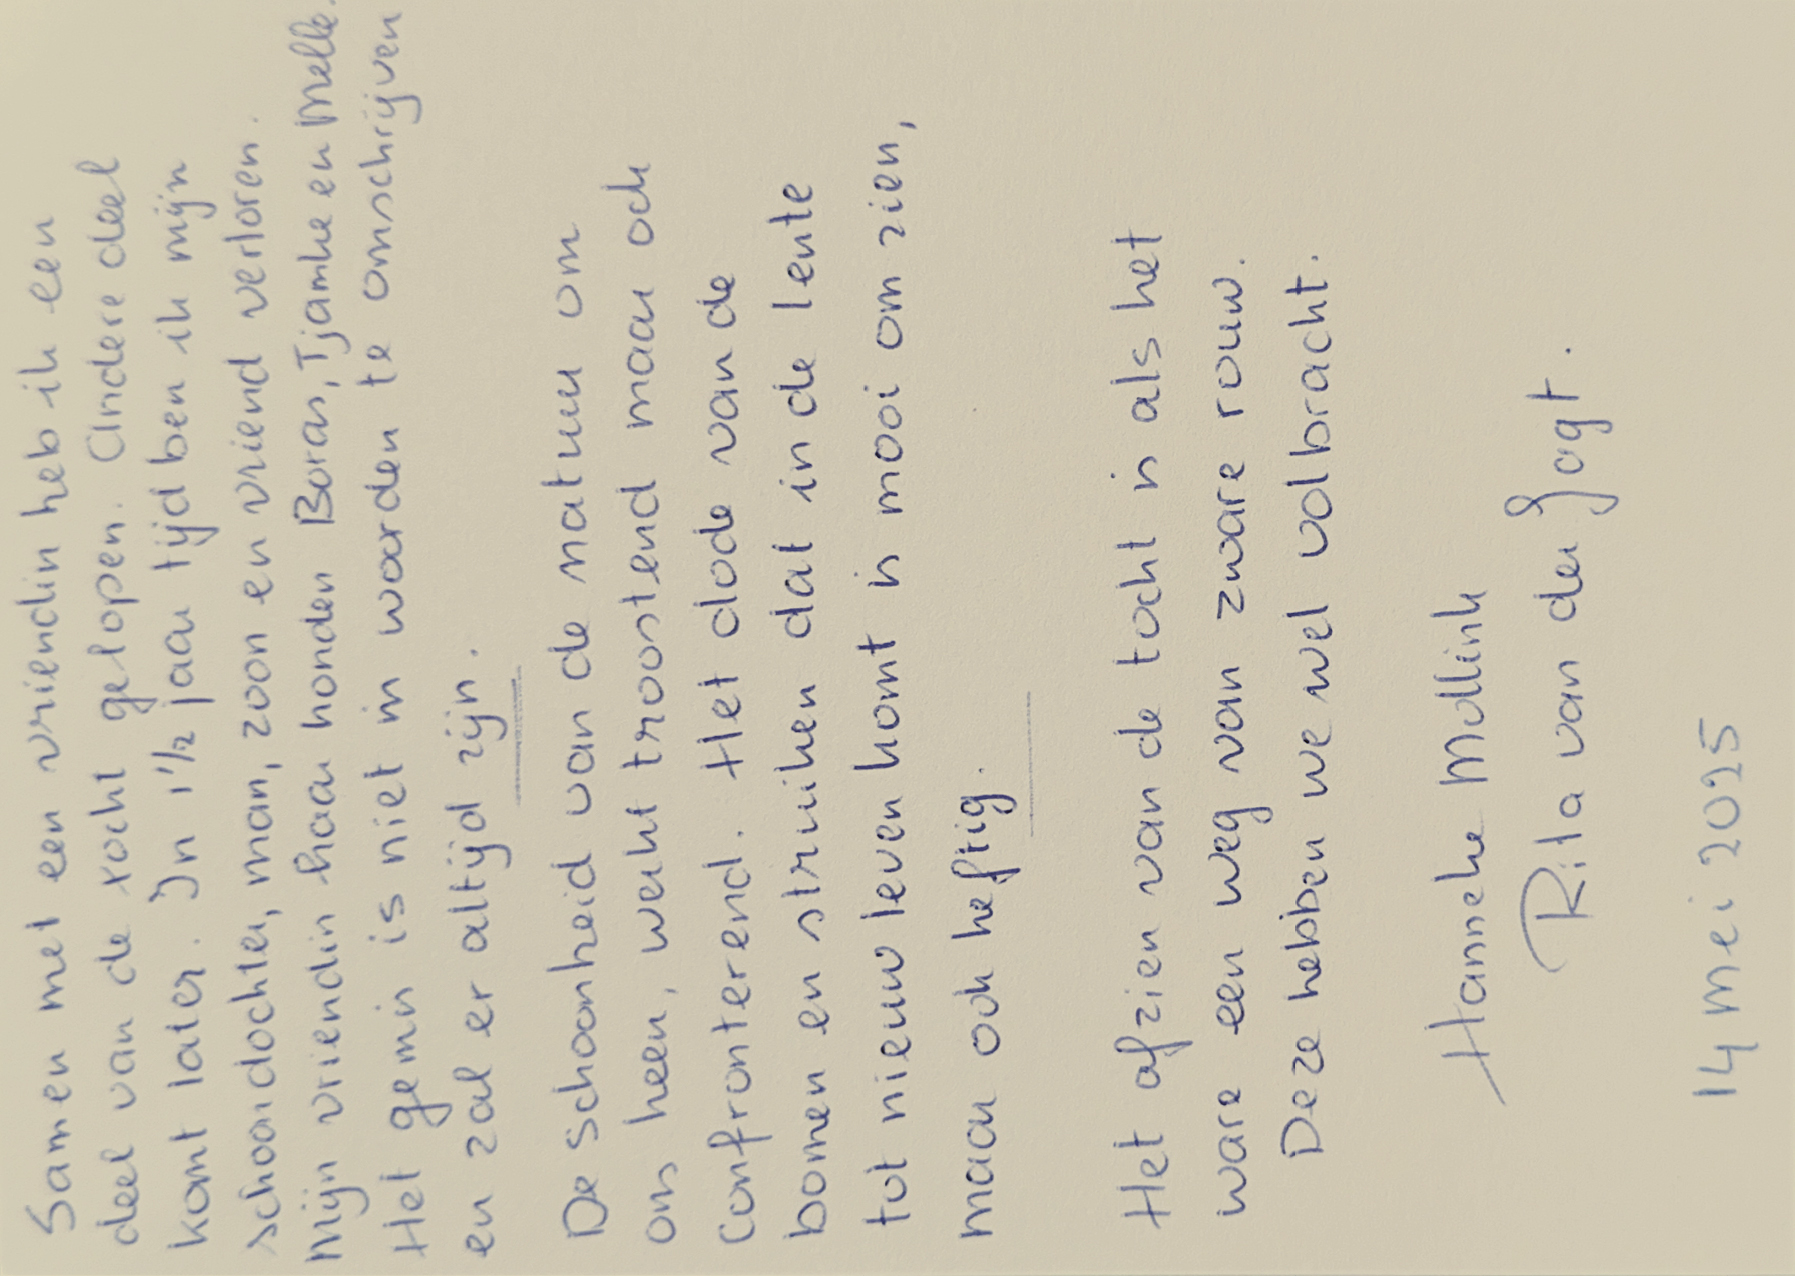 Samen met een vriendin heb ik een
deel van de tocht gelopen. Andere deel
komt later. In 1½ jaar tijd ben ik mijn
schoondochter, man, zoon en vriend verloren.
Mijn vriendin haar honden Boran, Tjamke en Melle.
Het gemis is niet in woorden te omschrijven
en zal er altijd zijn.
De schoonheid van de natuur om
ons heen, werkt troostend maar ook
confronterend. Het dode van de
bomen en struiken dat in de lente
tot nieuw leven komt is mooi om zien,
maar ook heftig.
Het afzien van de tocht is als het
ware een weg van zware rouw.
Deze hebben we wel volbracht.
Hanneke Mollink
Rita van der Jagt.
14 mei 2025